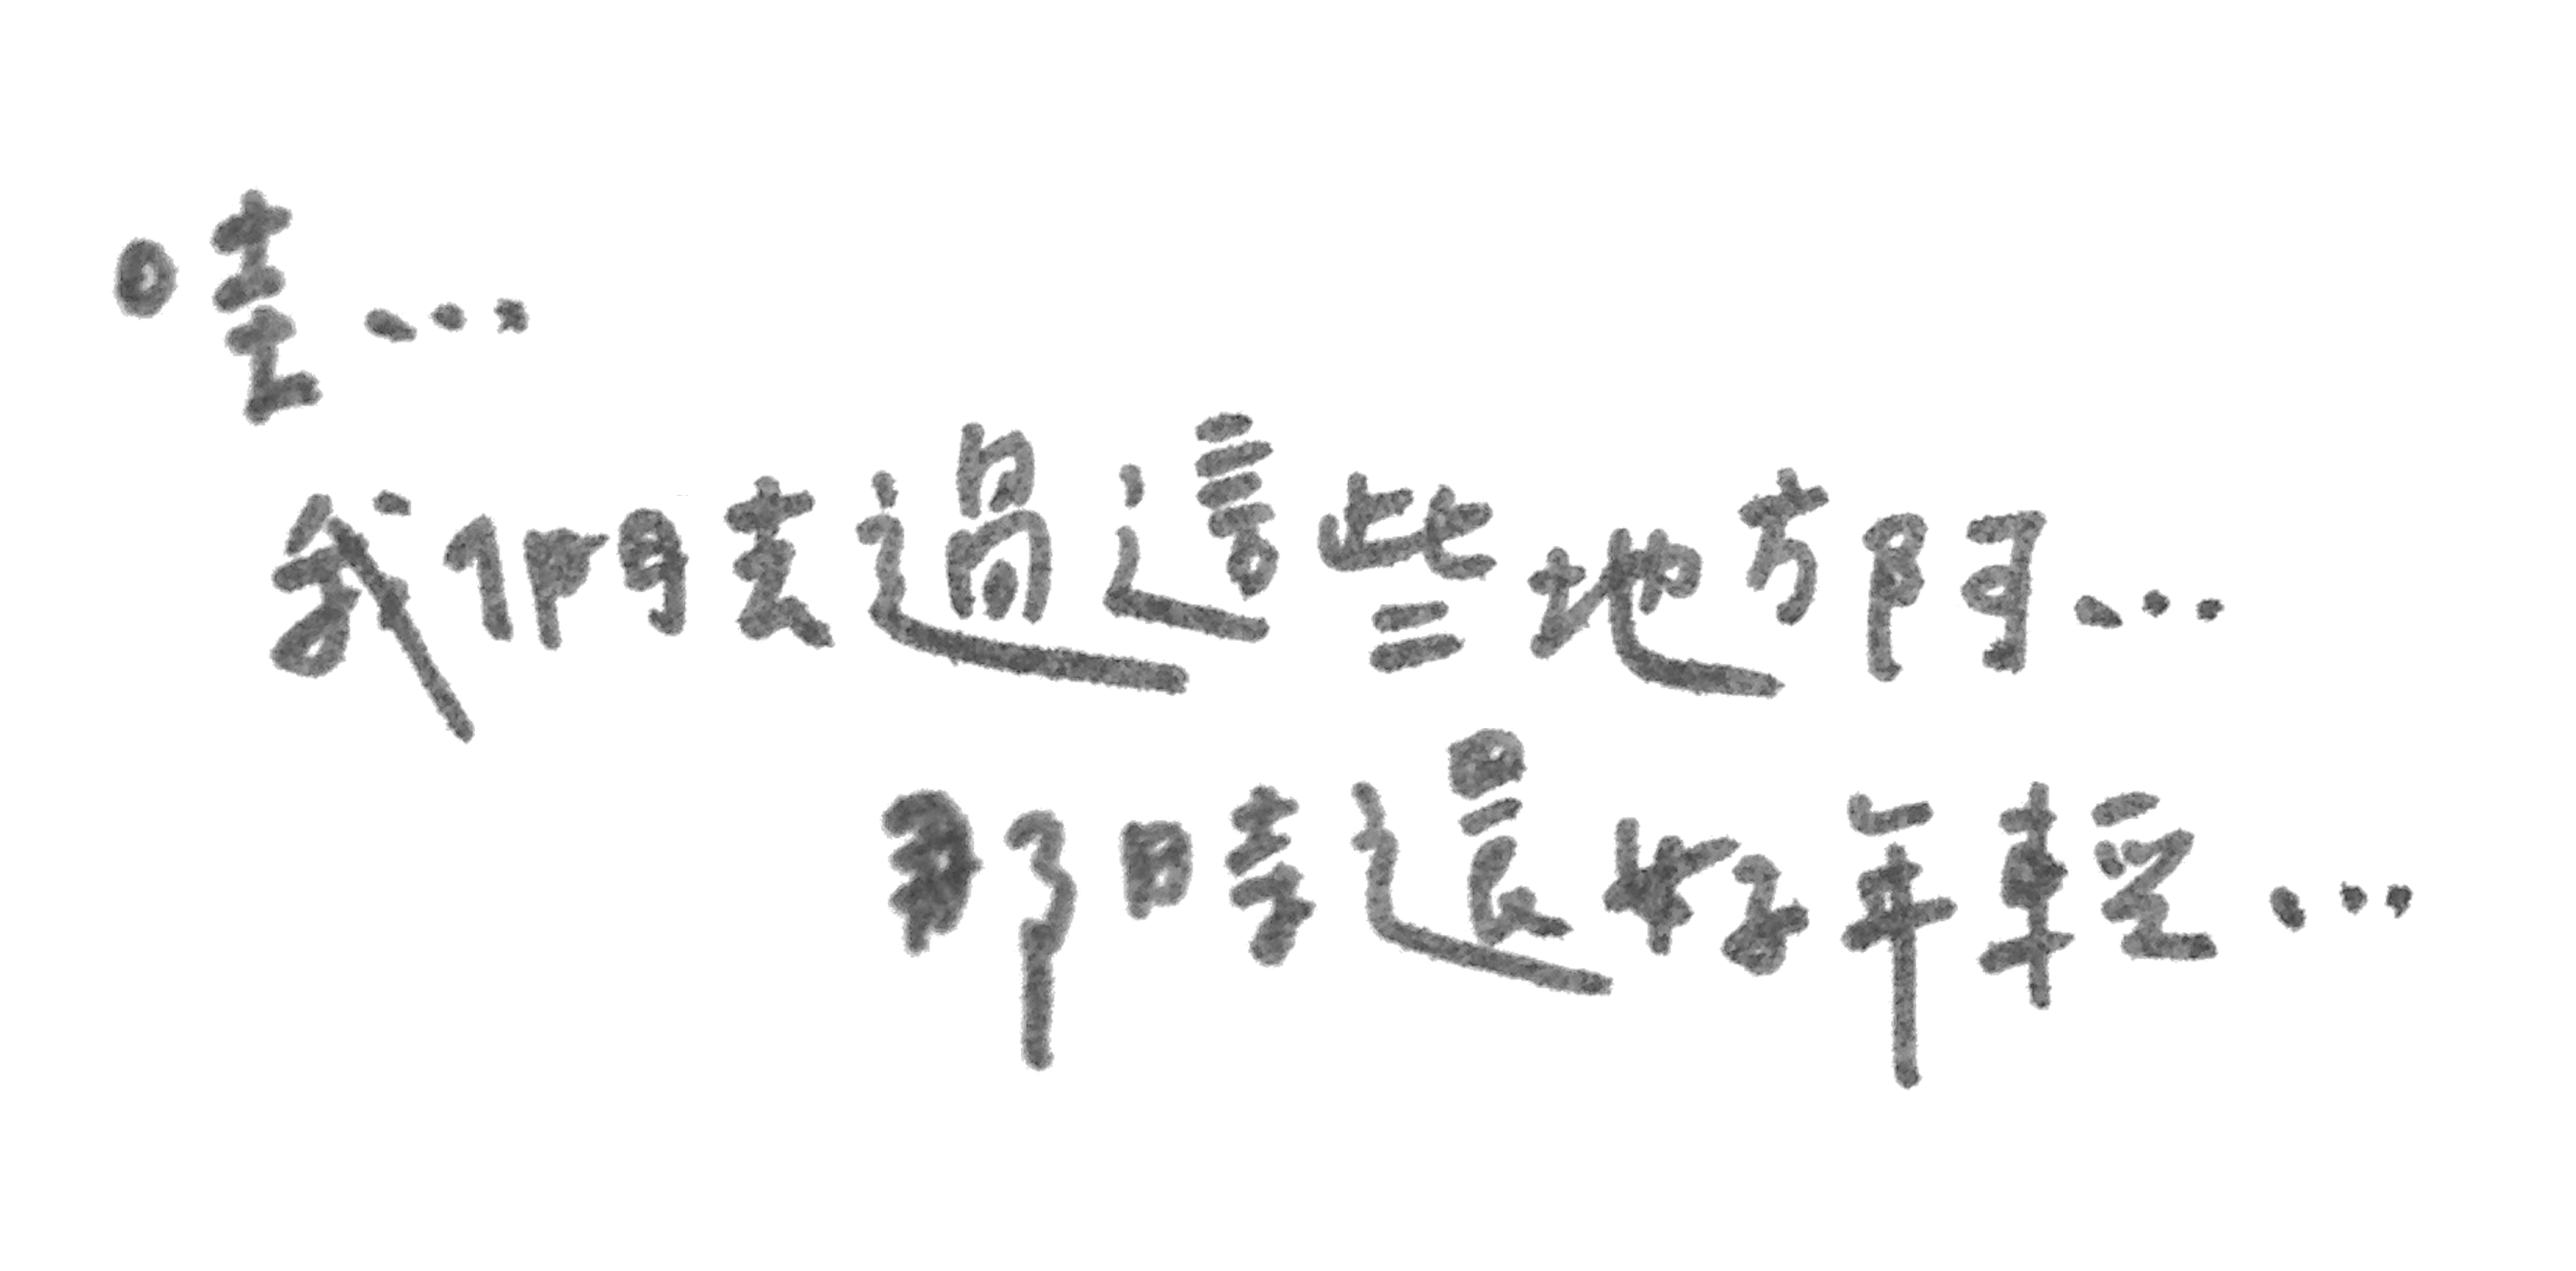 哇...
我們去過這些地方阿...
那時還好年輕...